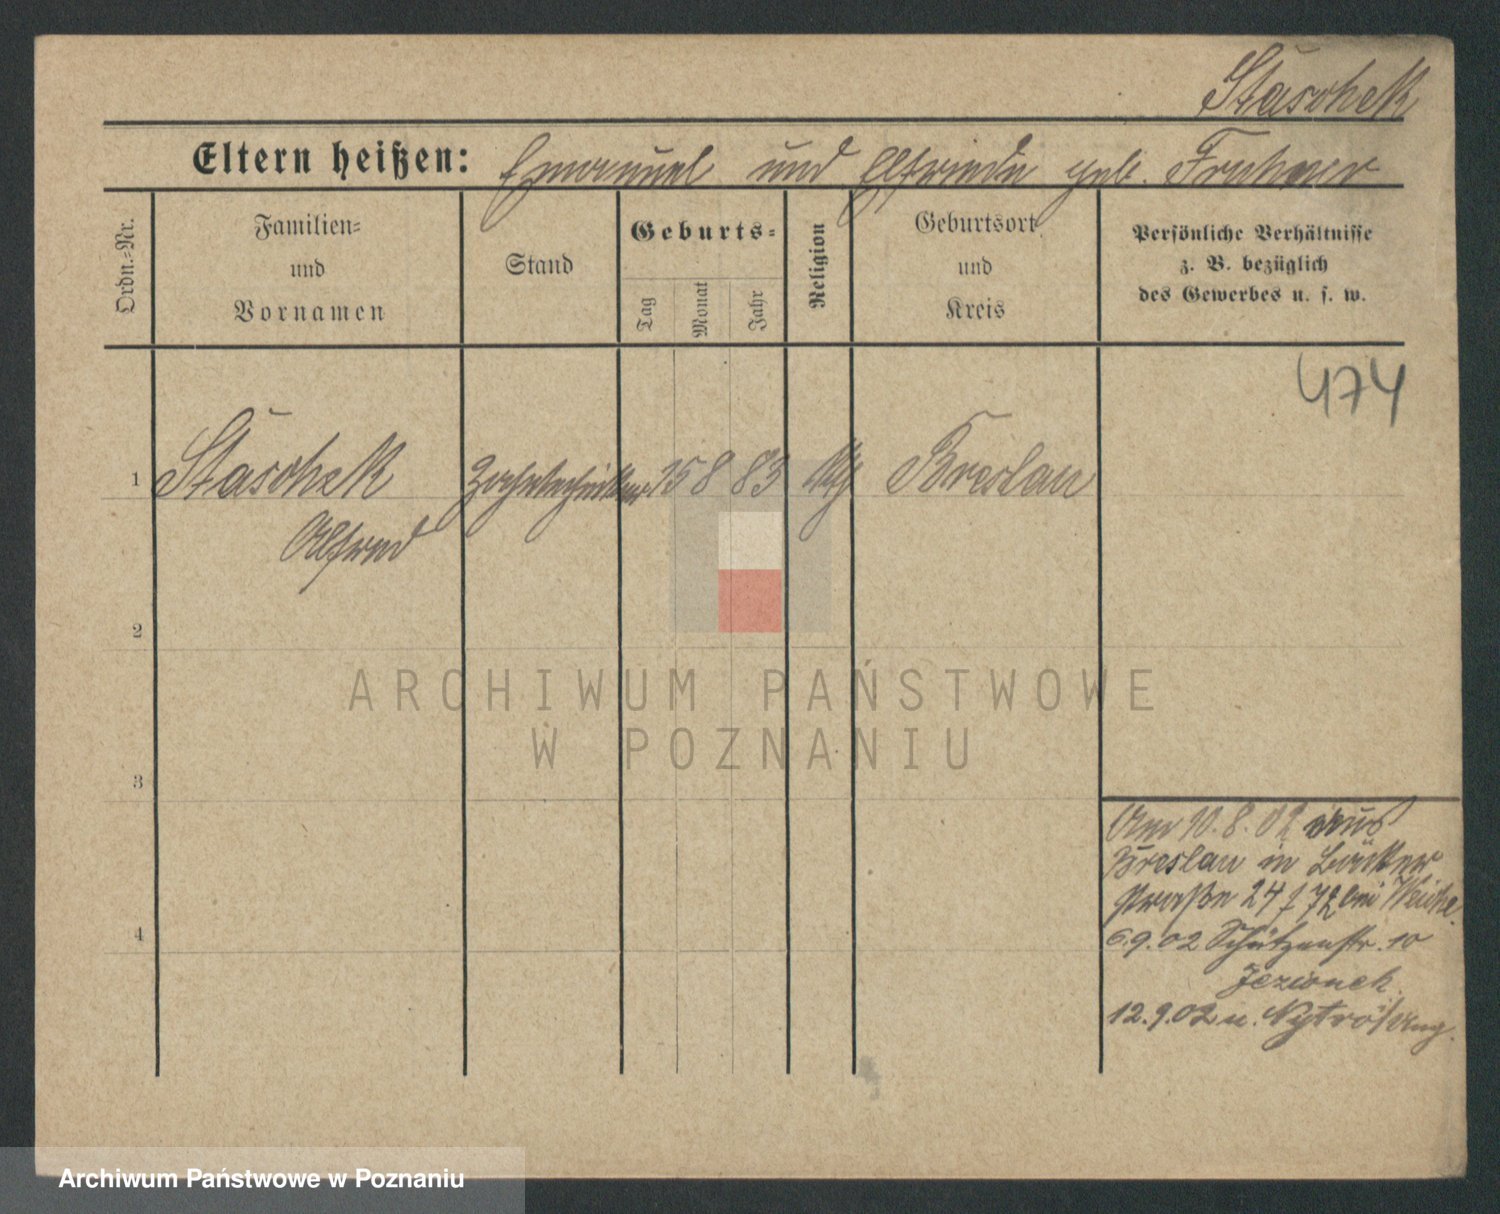 Staschek
Eltern heißen: Emanuel und Elfriede geb.
Ordn.-Nr.
Familien-
und
Vornamen
Stand
Geburts-
Tag
Monat
Jahr
Religion
Geburtsort
und
Kreis
Persönliche Verhältnisse
z. B. bezüglich
des Gewerbes u. s. w.
474
1 Staschek 15 8 83 Breslau
Alfred
2
ARCHIWUM PAŃSTWOWE
W POZNANIU
3
Am 10.8.02 aus
Breslau in
straße 24 bei
4
6.9.02 Schützenstr. 10
Jezionek
12.9.02 n.
Archiwum Państwowe w Poznaniu